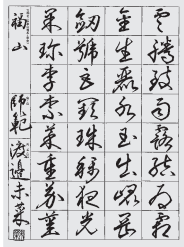 雲騰致雨露結為霜
金生麗水玉出崑岡
劔號巨闕珠稱夜光
菓珍李柰菜重芥薑
福山 師範 渡邊未菜